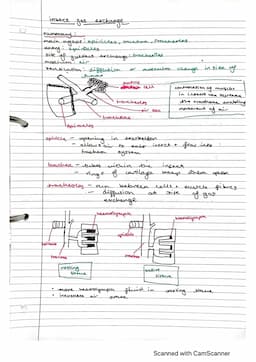 insect gas exchange
summary:
main organs: spiracles, trachea, tracheoles
entry: spiracles
site of gaseous exchange: tracheoles
medium: air
ventilation: diffusion or
change in size of
muscle
cell
tracheoles
tracheae
spiracles
contraction of muscles
in insect
movement of air
spiracle - opening in exoskeleton
allows air to enter insect + flow into
tracheal system
tracheae - tubes within the insect
rings of cartilage keep them open
tracheoles - run between cells + muscle fibres
- diffusion at site of gas
exchange
haemolymph
haemolymph
spiracle
trachea
resting
tissue
active
tissue
• more haemolymph fluid in resting tissue
• increase air
Scanned with CamScanner